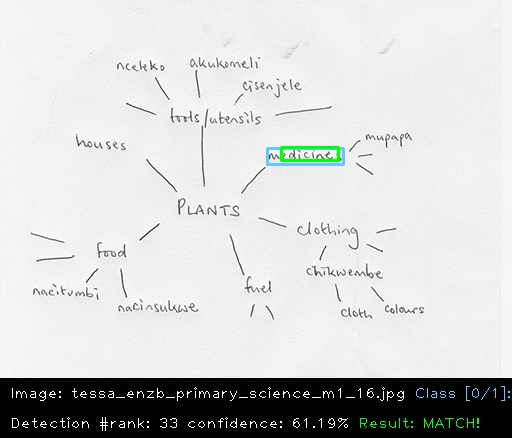 nceleko
akukomeli
cisenjele
tools/utensils
houses
medicine
mupapa
PLANTS
clothing
food
chikwembe
nacitumbi
nacinsukwe
fuel
cloth
colours
Image: tessa_enzb_primary_science_m1_16.jpg Class [0/1]:
Detection #rank: 33 confidence: 61.19% Result: MATCH!